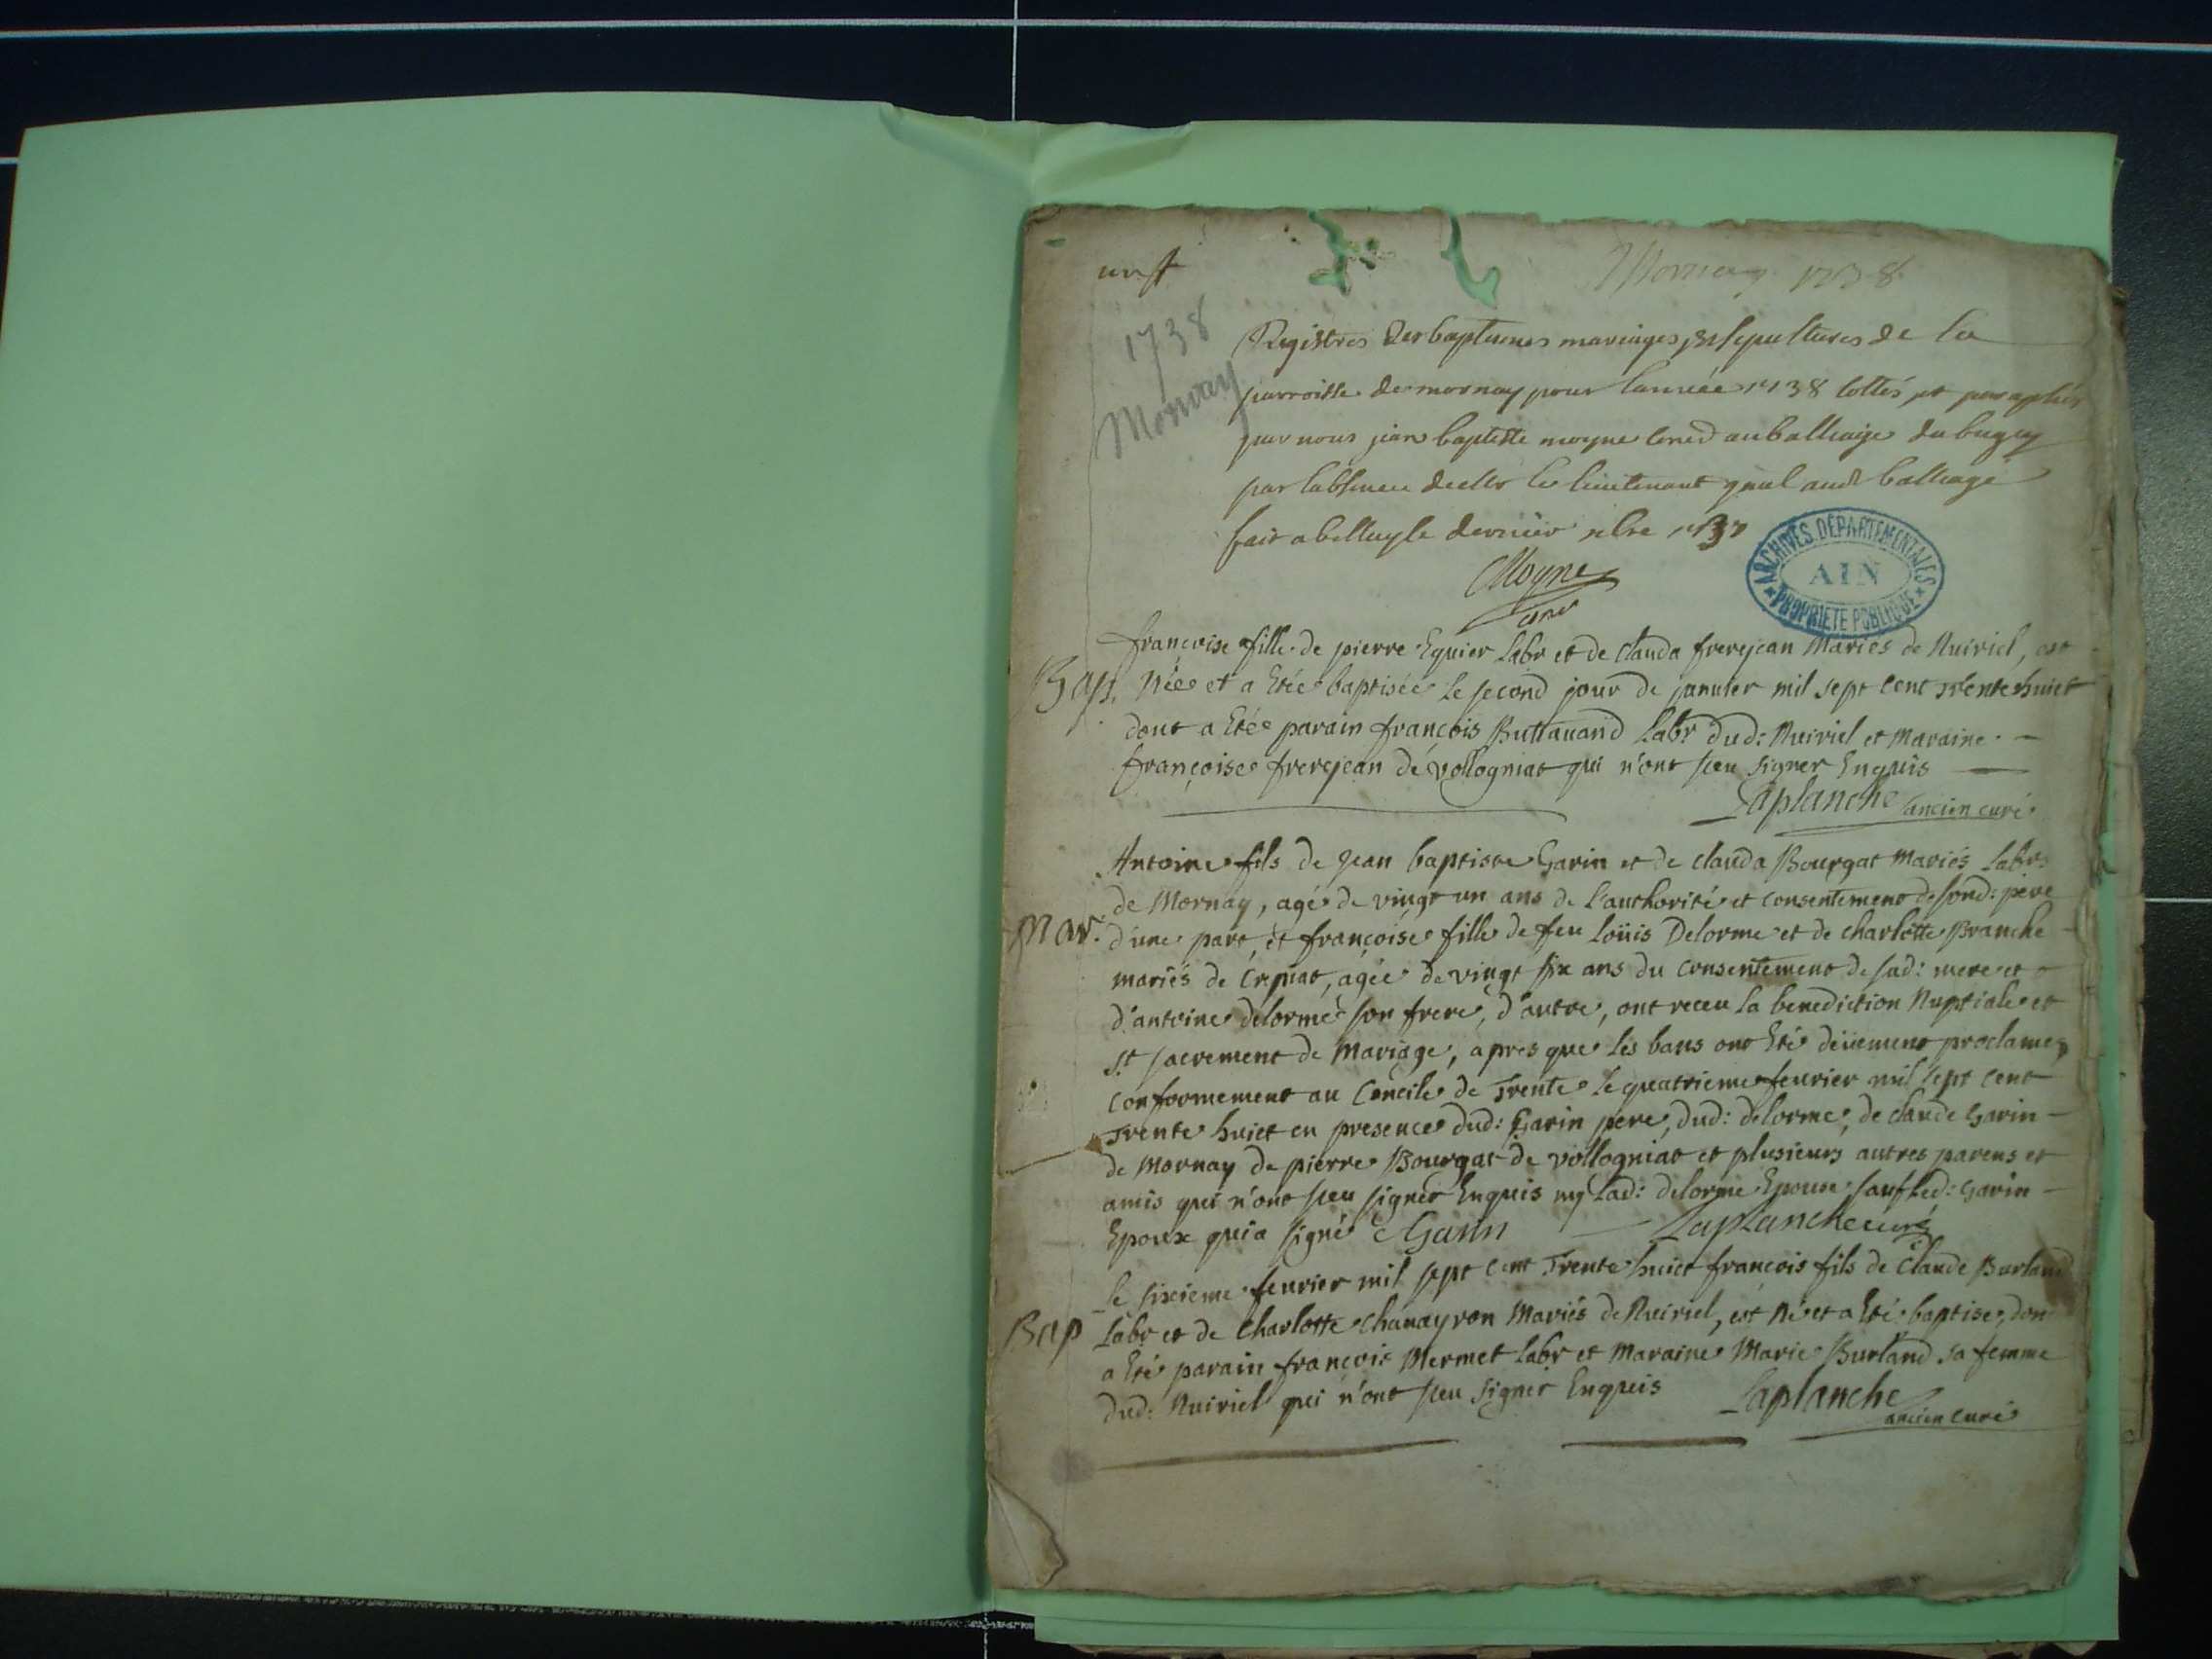 Mornay 1738
1738
Mornay
Registres des baptemes mariages et sepultures de la
parroisse de mornay pour lannéé 1738 cottés et paraphés
par nous jean baptiste moyne au balliage du bugey
par labsence de le lieutenant gnal aud balliage
fait a belley le dernier xbre 1737
Moyne
ARCHIVES DEPARTEMENTALES
AIN
PROPRIETE PUBLIQUE
françoise fille de pierre Eguier Labr et de Clauda frerejean Mariés de Nuiriel, est
Bap. Née et a Etée baptisée le second jour de janvier mil sept cent trente huict
dont a Etée parain françois Buttavand Labr dud: Nuiriel et Maraine
françoise frerejean de vollogniat qui n'ont sceu signer Enquis
Laplanche ancien curé
Antoine fils de Jean baptiste Garin et de clauda Bourgat mariés Labrs
de Mornay, agé de vingt un ans de l'authorité et consentement de sond: père
Mar. d'une part, et françoise fille de feu Loüis Delorme et de charlotte Branche
mariés de Crepiat, agée de vingt six ans du consentement de sad: mere et
d'antoine delorme son frere, d'autre, ont receu la benediction Nuptiale et
St sacrement de Mariage, apres que les bans ont Eté deüement proclamez
conformement au Concile de Trente le quatrieme feurier mil sept cent
Trente huict en presence dud: Garin pere, dud: delorme, de claude Garin
de Mornay de pierre Bourgat de vollogniat et plusieurs autres parens et
amis qui n'ont sceu signer Enquis ny Lad: delorme Epouse sauf led: Garin
Epoux qui a signé A Garin Laplanche curé
Le sixieme feurier mil sept cent Trente huict francois fils de Claude Burland
Bap Labr et de Charlotte chanayron Mariés de Nuiriel, est Né et a Eté baptise, don
a Eté parain françois Mermet Labr et Maraine Marie Burland sa femme
dud: Nuiriel qui n'ont sceu signer Enquis Laplanche
ancien curé